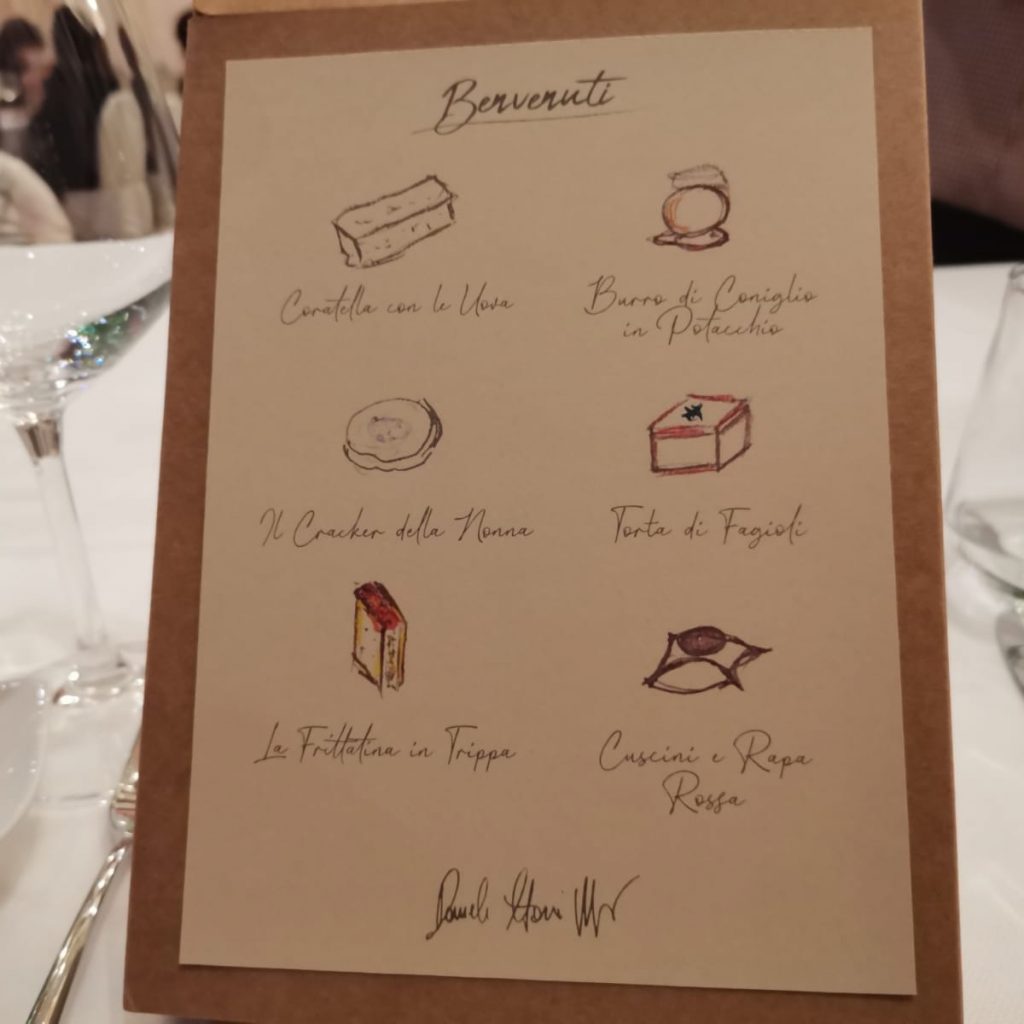 Benvenuti
Coratella con le Uova
Burro di Coniglio
in Potacchio
Il Cracker della Nonna
Torta di Fagioli
La Frittatina in Trippa
Cuscini e Rapa
Rossa